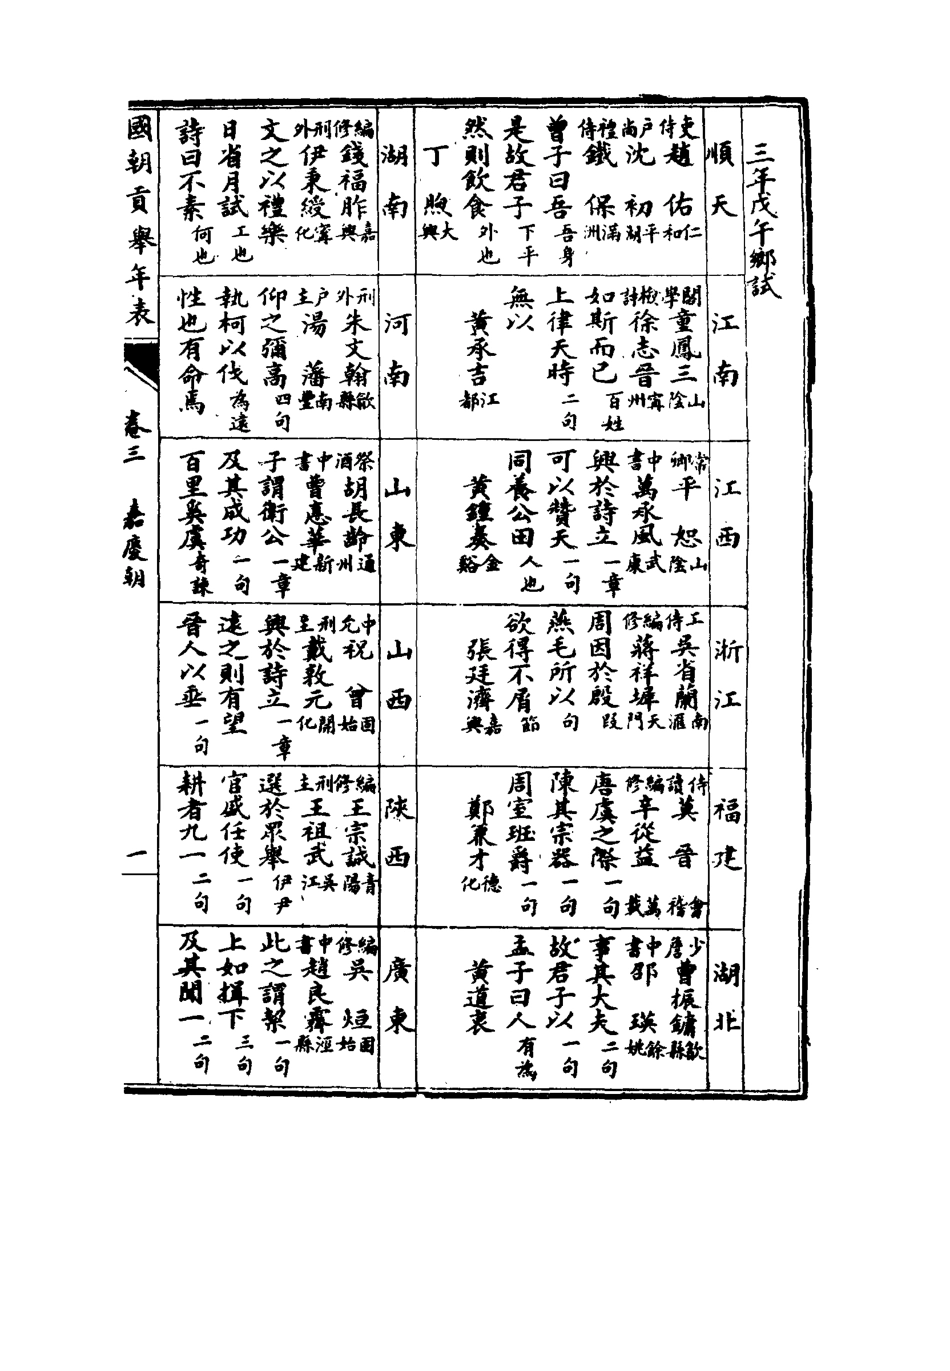 三年戊午鄉試
順天
吏侍趙佑仁和
戶尚沈初平湖
禮侍鐵保滿洲
曾子曰吾吾身
是故君子下平
然則飲食外也
丁煦大興
江南
閣學童鳳三山陰
檢討徐志晉甯州
如斯而已百姓
上律天時二句
無以
黃承吉江都
江西
常卿平恕山陰
中書萬承風武康
興於詩立一章
可以贊天一句
同養公田人也
黃鐘奏金谿
浙江
工侍吳省蘭南滙
編修蔣祥墀天門
周因於殷段
燕毛所以句
欲得不屑節
張廷濟嘉興
福建
侍讀莫晉會稽
編修辛從益萬載
唐虞之際一句
陳其宗器一句
周室班爵一句
鄭兼才德化
湖北
少詹曹振鏞歙縣
中書邵瑛餘姚
事其大夫二句
故君子以一句
孟子曰人有為
黃道衷
湖南
編修錢福胙嘉興
刑外伊秉綬甯化
文之以禮樂
日省月試工也
詩曰不素何也
河南
刑外朱文翰歙縣
戶主湯藩南豐
仰之彌高四句
執柯以伐為遠
性也有命焉
山東
祭酒胡長齡通州
中書曹惠華新建
子謂衛公一章
及其成功一句
百里奚虞奇諫
山西
中允祝曾固始
刑主戴敦元開化
興於詩立一章
遠之則有望
晉人以垂一句
陝西
編修王宗誠青陽
刑主王祖武吳江
選於眾舉伊尹
官盛任使一句
耕者九一二句
廣東
編修吳烜固始
中書趙良霨涇縣
此之謂絜一句
上如揖下三句
及其聞一二句
國朝貢舉年表
卷三
嘉慶朝
一